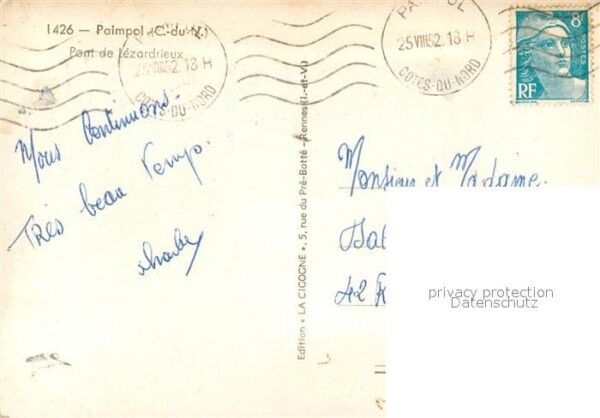 1426 — Paimpol (C.-du-N.)
Pont de Lézardrieux
25 VIII 52. 18 H
COTES-DU-NORD
25 VIII 52. 18 H
COTES-DU-NORD
8F
POSTES
RF
Nous Continuons.
Très beau Temps.
Edition « LA CIGOGNE », 5, rue du Pré-Botté - Rennes (I.-et-V.)
Monsieur et Madame
42 R
privacy protection
Datenschutz